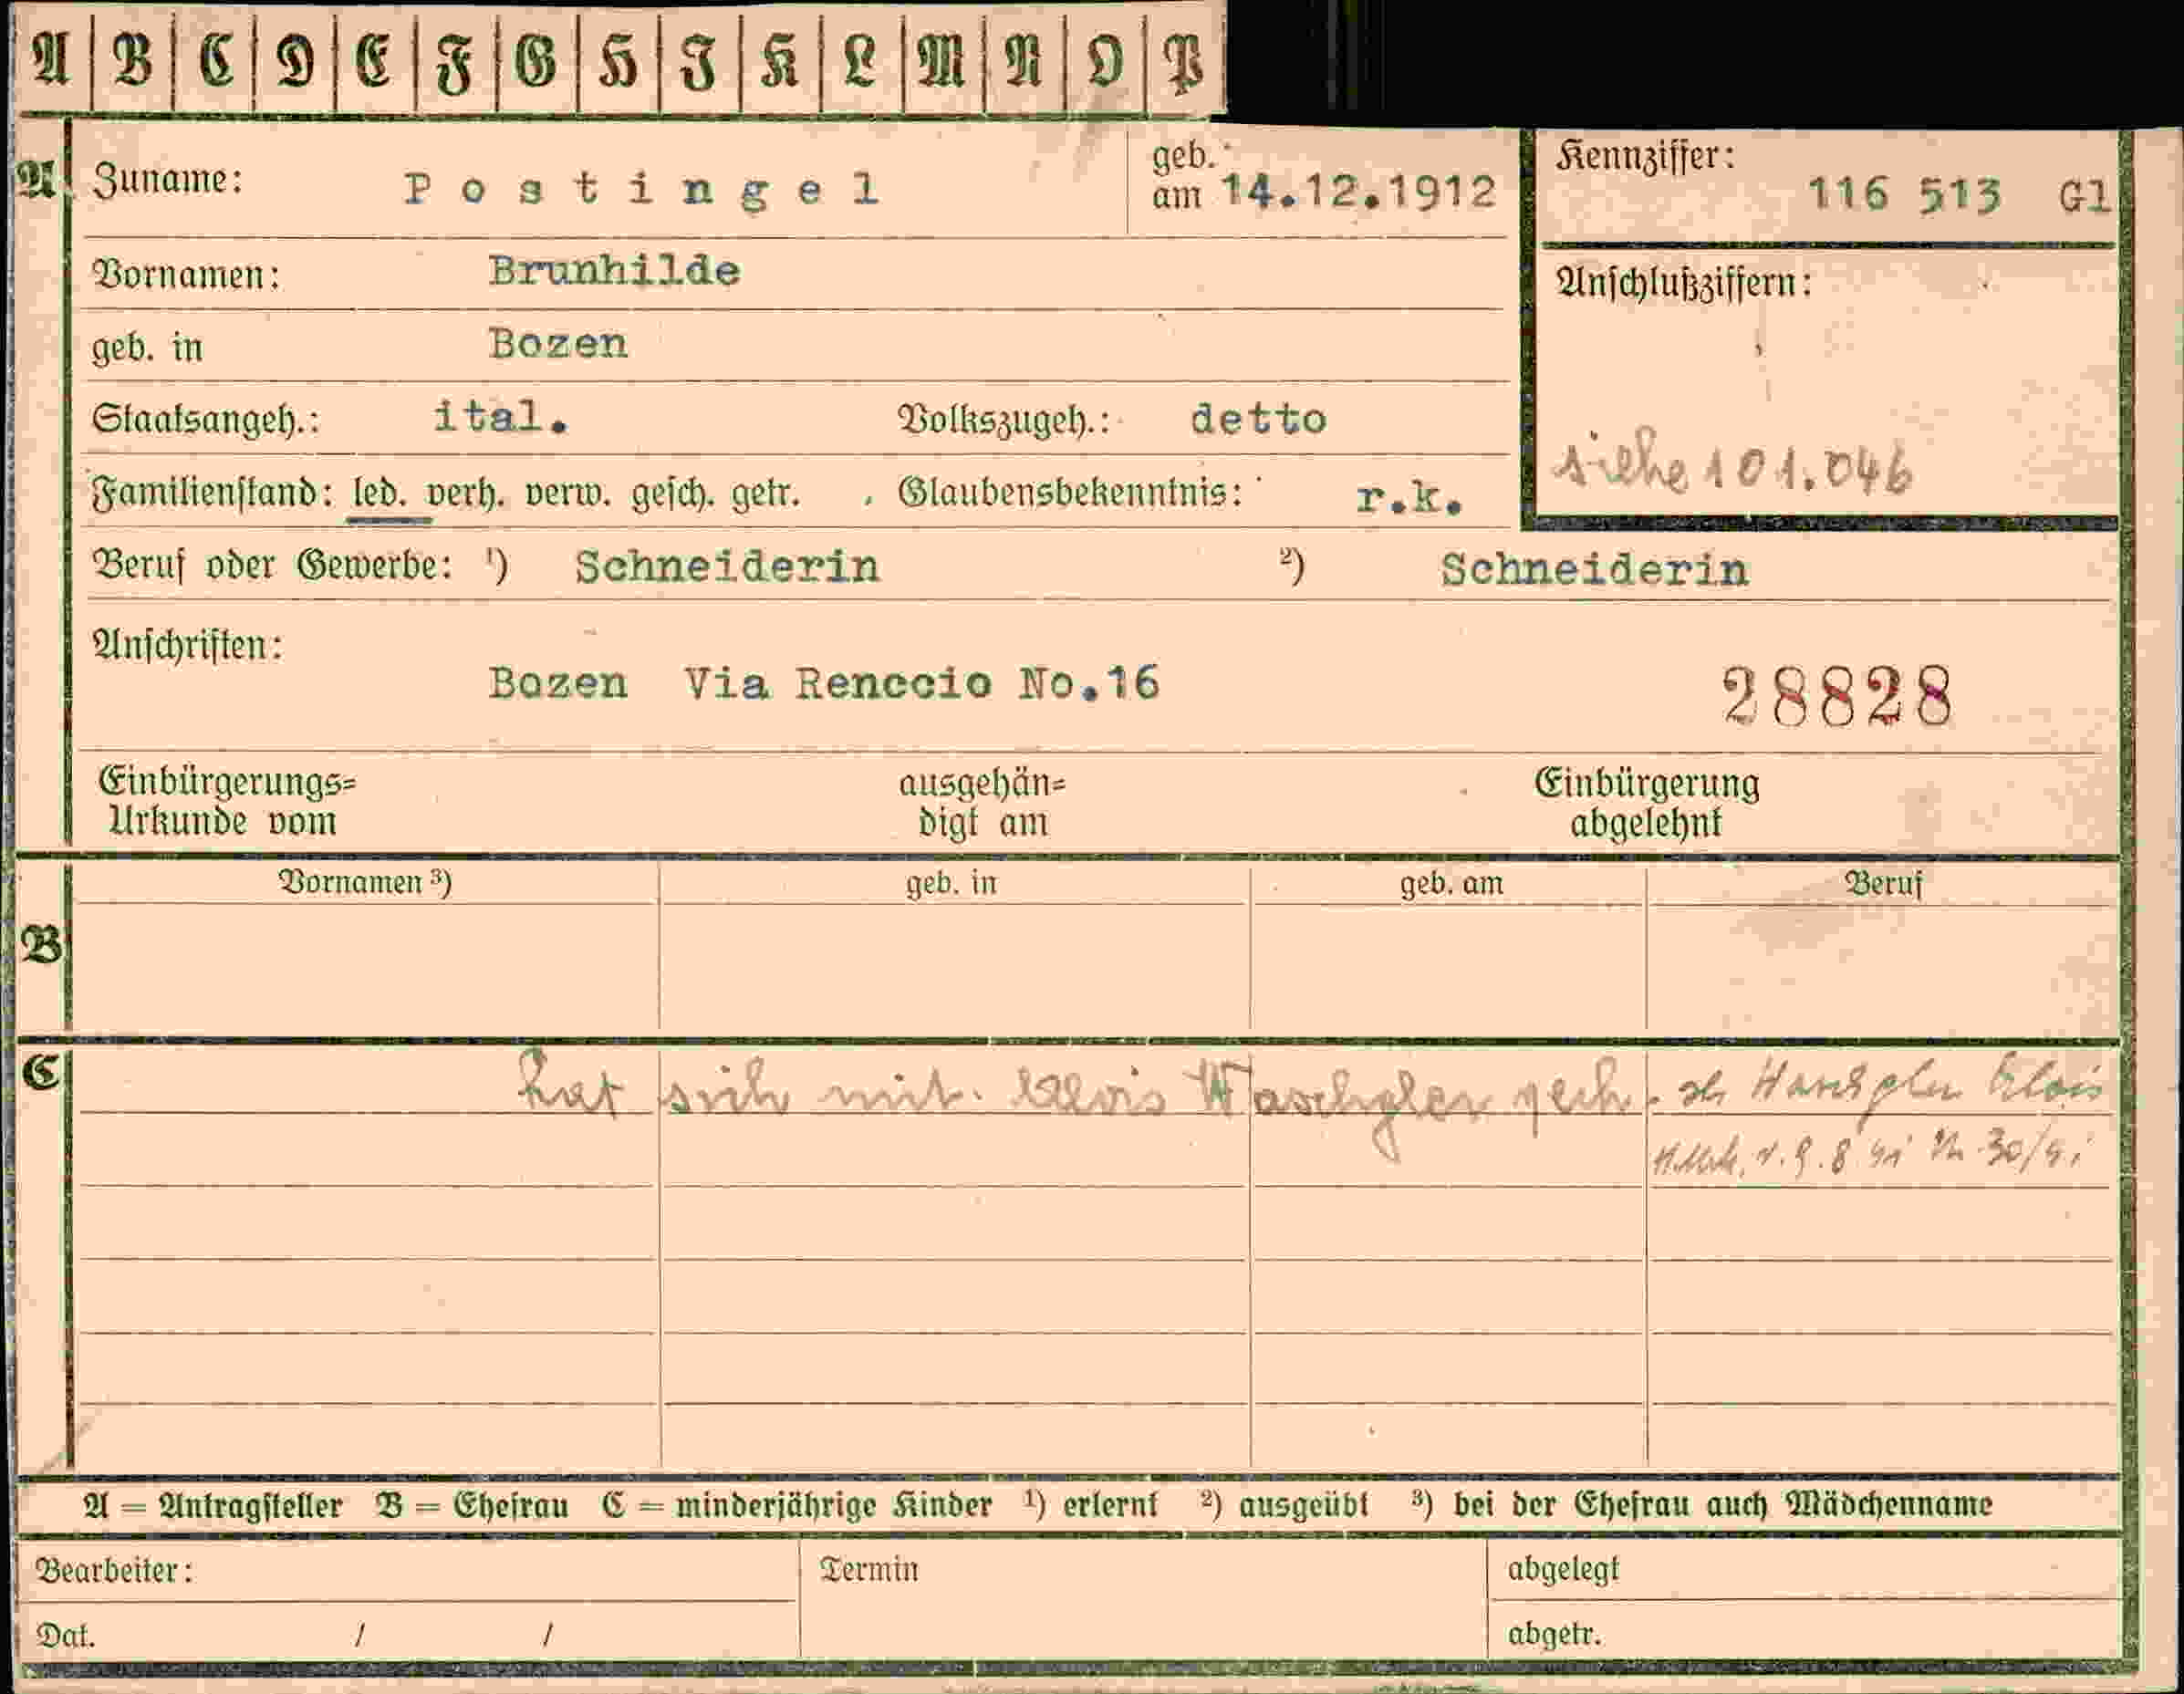 A B C D E F G H I K L M N O P
A Zuname: Postingel geb. am 14.12.1912 Kennziffer: 116 513 Gl
Vornamen: Brunhilde Anschlußziffern:
geb. in Bozen
Staatsangeh.: ital. Volkszugeh.: detto
siehe 101.046
Familienstand: led. verh. verw. gesch. getr. Glaubensbekenntnis: r.k.
Beruf oder Gewerbe: ¹) Schneiderin ²) Schneiderin
Anschriften:
Bozen Via Renccio No.16 28828
Einbürgerungs= ausgehän= Einbürgerung
Urkunde vom digt am abgelehnt
Vornamen ³) geb. in geb. am Beruf
B
C
hat sich mit Alois Waschgler Alois
v. 9.8.41 30/41
A = Antragsteller B = Ehefrau C = minderjährige Kinder ¹) erlernt ²) ausgeübt ³) bei der Ehefrau auch Mädchenname
Bearbeiter: Termin abgelegt
Dat. / / abgetr.